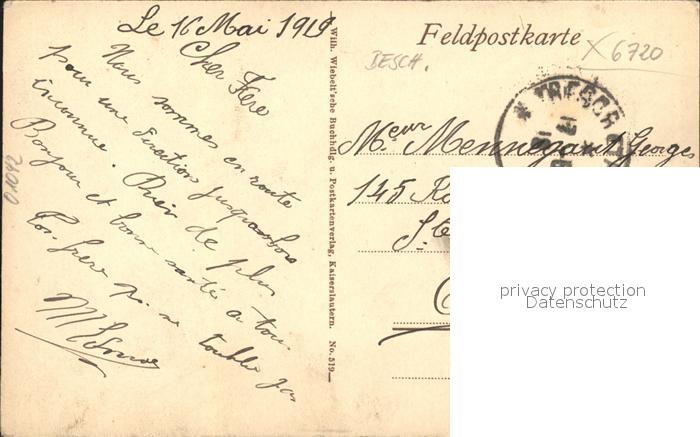 Le 16 Mai 1919
Cher Frère
Nous sommes en route
pour une direction jusqu'alors
inconnue. Rien de plus
Bonjour et bonne santé à tous.
Ton frère qui ne t'oublie pas
01092
Wilh. Wiebelt'sche Buchhdlg. u. Postkartenverlag, Kaiserslautern. No. 519
Feldpostkarte
BESCH.
X 6720
* TRESOR
Mr Mennegant Georges
145 R
St
privacy protection
Datenschutz